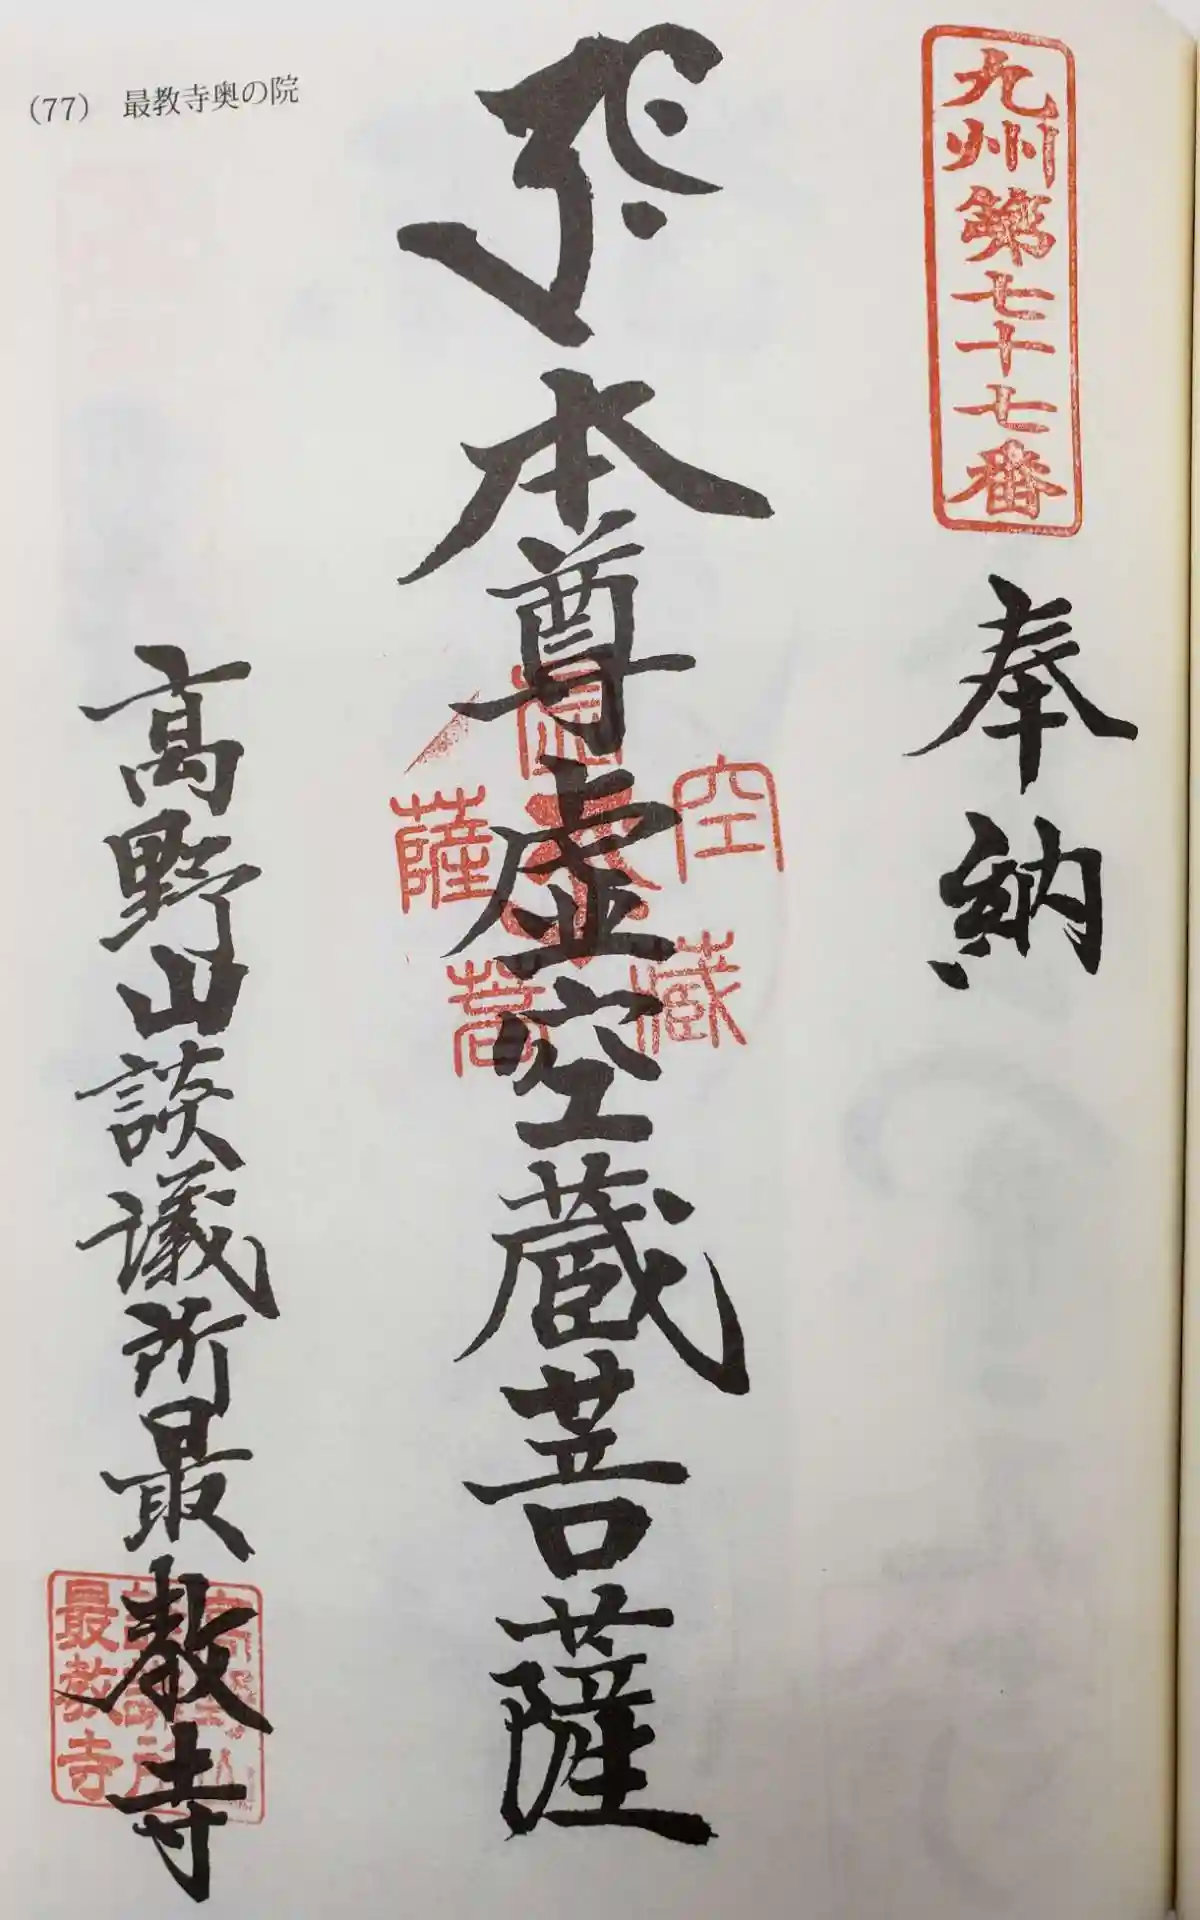 (77) 最教寺奥の院
九州第七十七番
奉納
本尊虚空蔵菩薩
空
藏
菩
薩
高野山談議所最教寺
最教寺